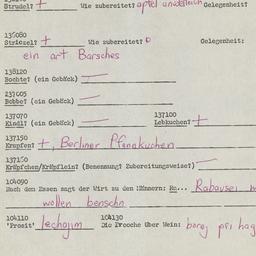 Strudel? + Wie zubereitet? apfel Gelegenheit?
135080
Striezel? + Wie zubereitet? Gelegenheit:
ein art Barsches
138120
Bochte? (ein Gebäck) —
137G05
Bobbe? (ein Gebäck) —
137070 197100
Kindl? (ein Gebäck) — Lebkuchen? +
137150
Krapfen? +, Berliner Pfanakuchen
137150
Kräpfchen/Kräpflein? (Benennung? Zubereitungsweise?) —
104090
Nach dem Essen sagt der Wirt zu den Männern: Ra... Rabausei
wollen benschn
104110 104130
'Prosit' lechajim Die Broche über Wein: borej pri hag